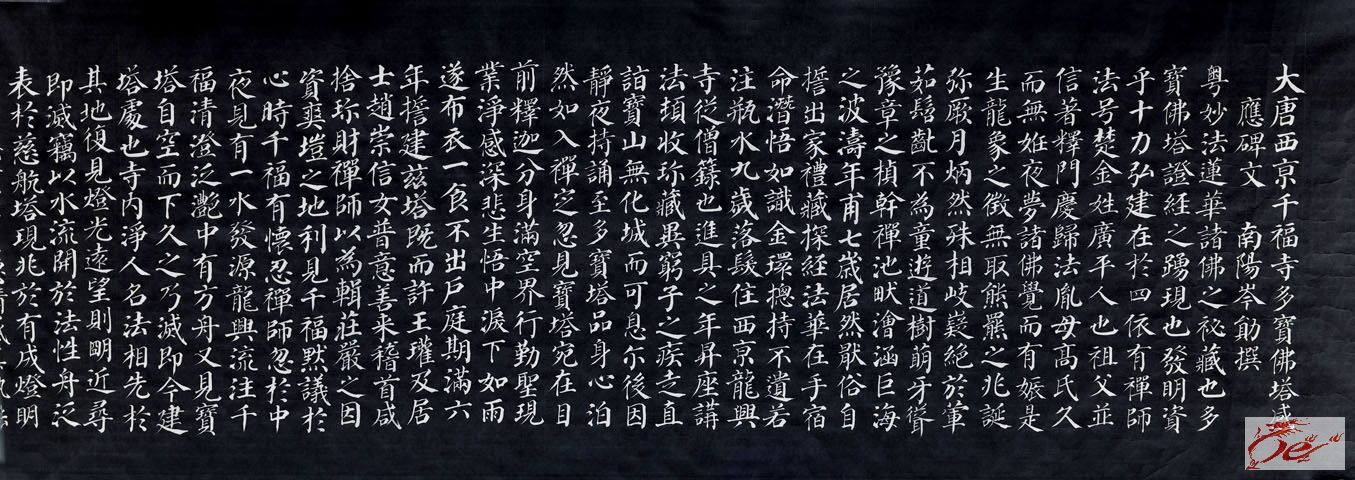 大唐西京千福寺多寶佛塔感
應碑文 南陽岑勛撰
粵妙法蓮華諸佛之祕藏也多
寶佛塔證經之踴現也發明資
乎十力弘建在於四依有禪師
法号楚金姓廣平人也祖父並
信著釋門慶歸法胤母高氏久
而無姙夜夢諸佛覺而有娠是
生龍象之徵無取熊羆之兆誕
弥厥月炳然殊相岐嶷絕於葷
茹髫齓不為童遊道樹萌牙聳
豫章之楨幹禪池畎澮涵巨海
之波濤年甫七歲居然猒俗自
誓出家禮藏探經法華在手宿
命潛悟如識金環摠持不遺若
注瓶水九歲落髮住西京龍興
寺從僧籙也進具之年昇座講
法頓收珎藏異窮子之疾走直
詣寶山無化城而可息尔後因
靜夜持誦至多寶塔品身心泊
然如入禪定忽見寶塔宛在目
前釋迦分身滿空界行勤聖現
業淨感深悲生悟中淚下如雨
遂布衣一食不出戶庭期滿六
年誓建茲塔既而許王瓘及居
士趙崇信女普意善来稽首咸
捨珎財禪師以為輯莊嚴之因
資爽塏之地利見千福默議於
心時千福有懷忍禪師忽於中
夜見有一水發源龍興流注千
福清澄泛灧中有方舟又見寶
塔自空而下久之乃滅即今建
塔處也寺內淨人名法相先於
其地復見燈光遠望則明近尋
即滅竊以水流開於法性舟泛
表於慈航塔現兆於有成燈明